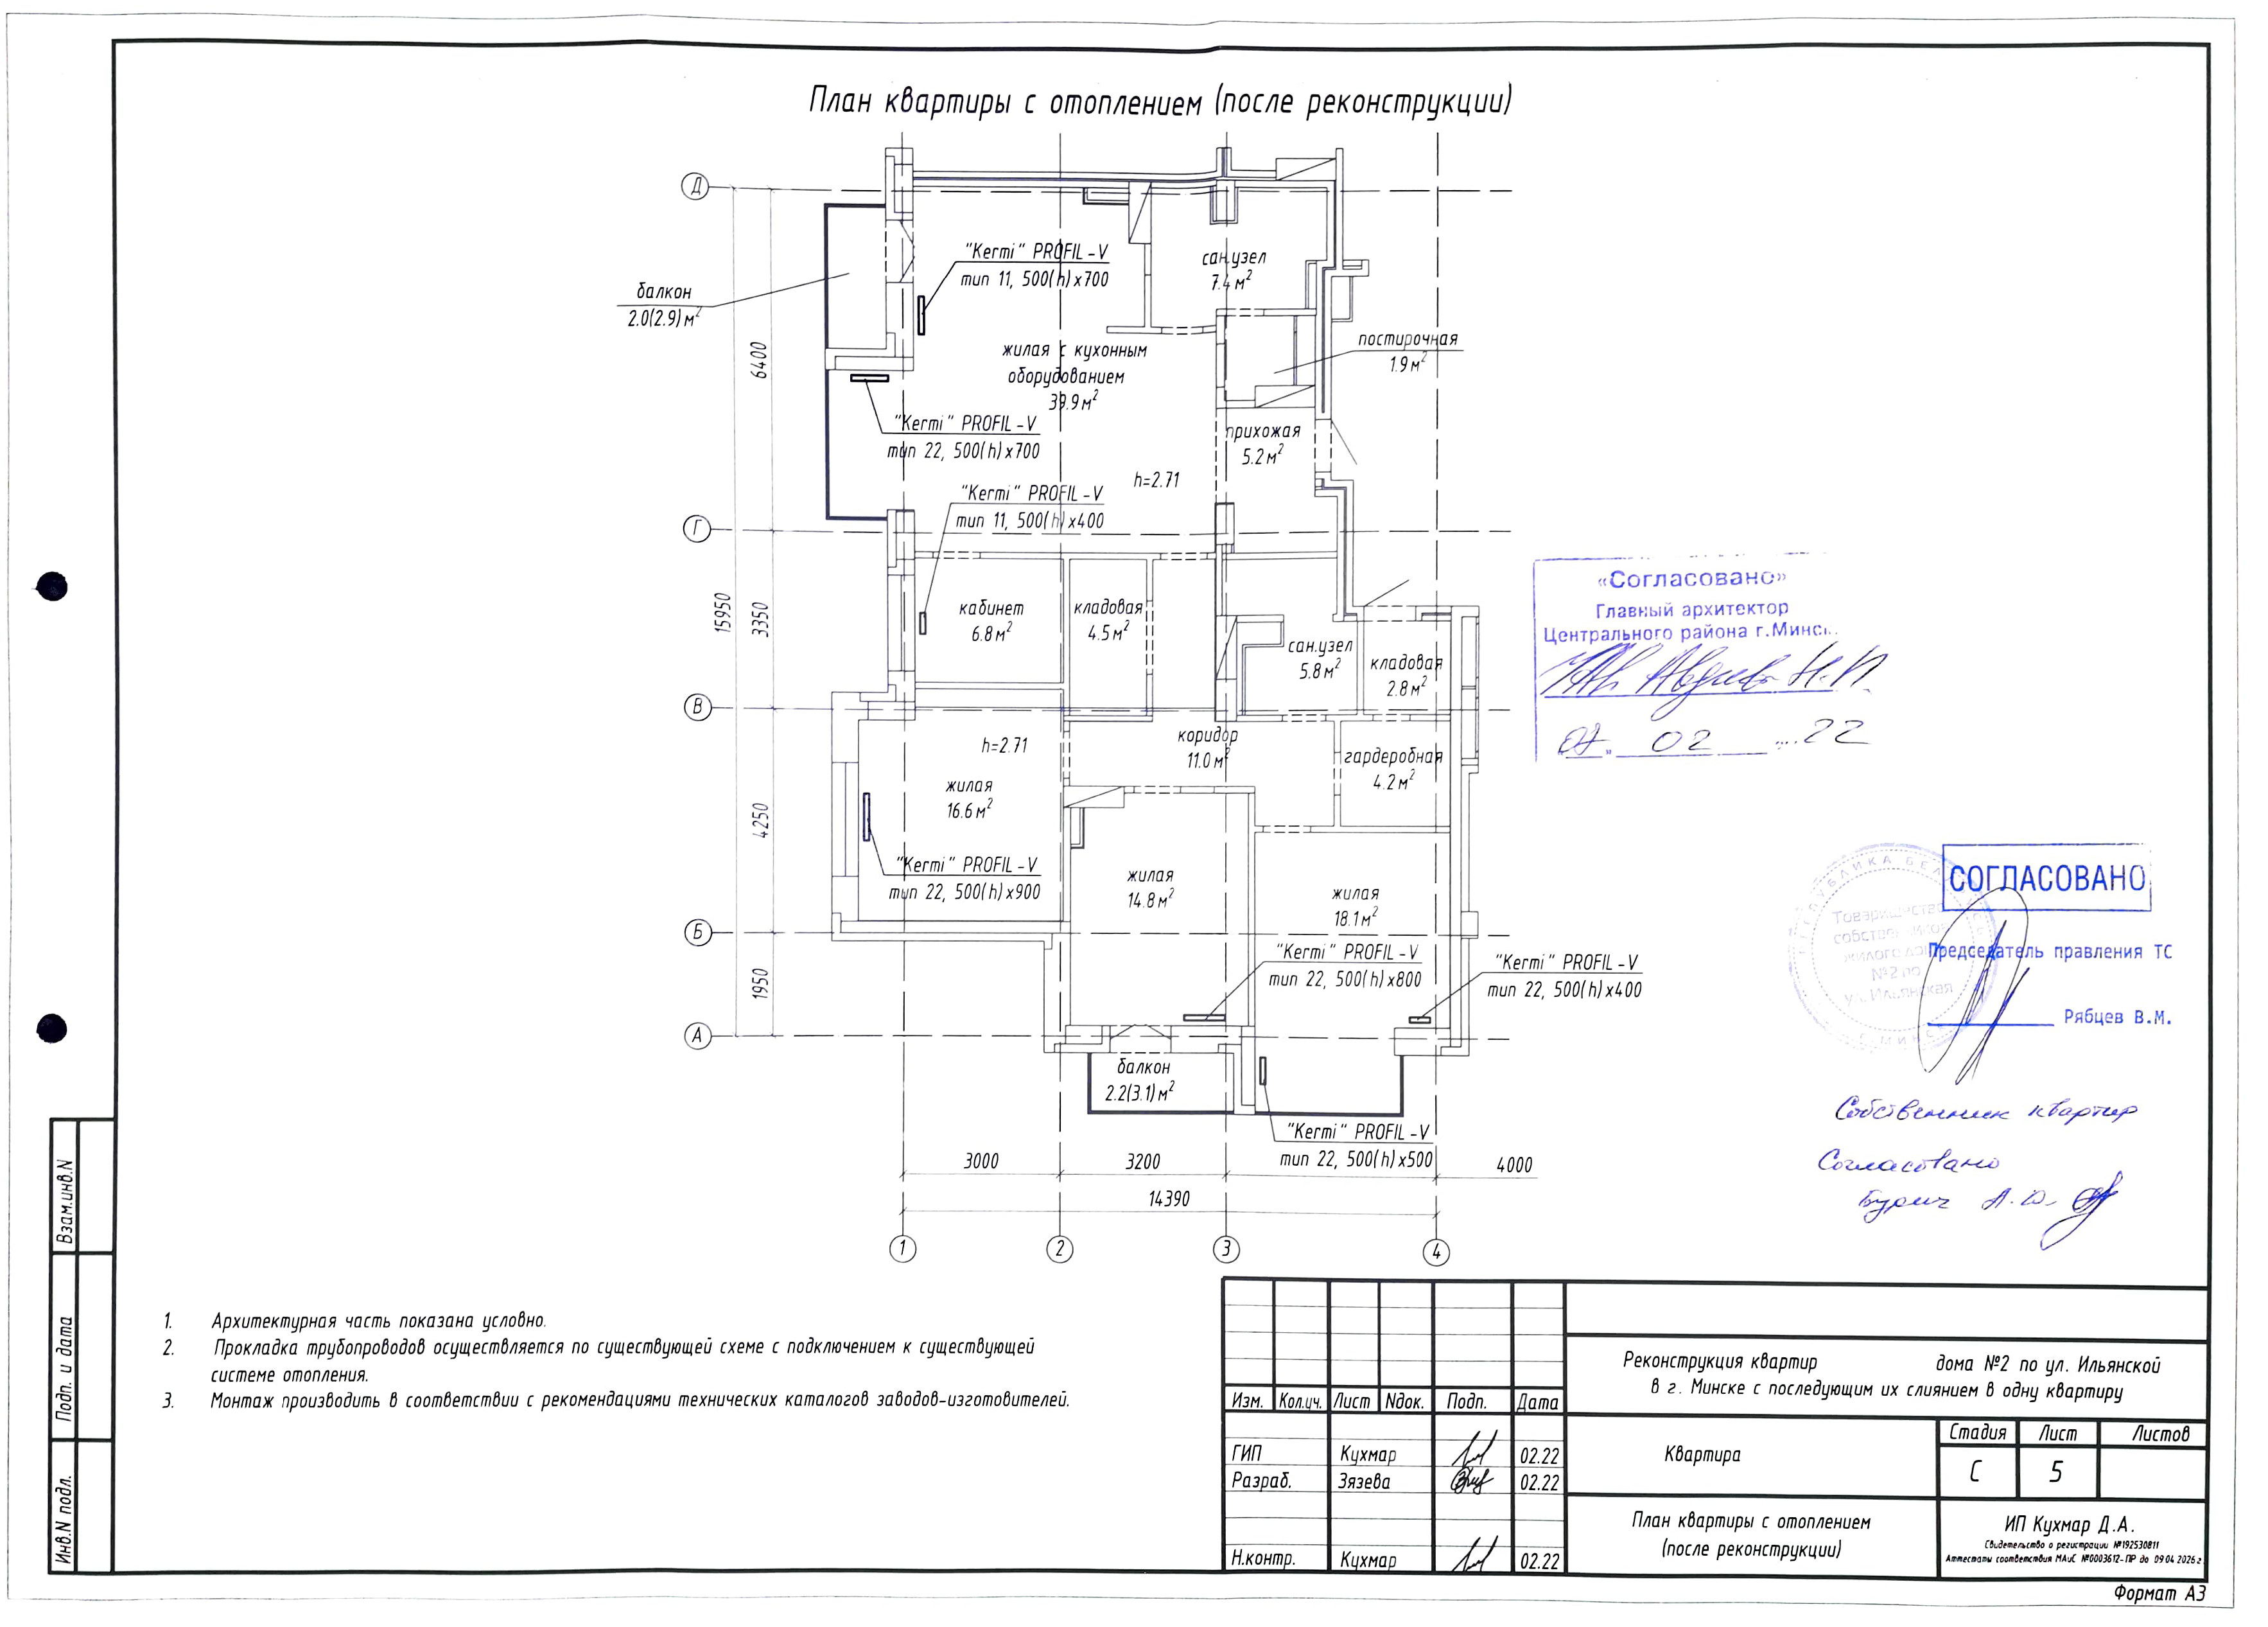 План квартиры с отоплением (после реконструкции)
Д
"Kermi" PROFIL-V
тип 11, 500(h)x700
сан.узел
7.4 м²
балкон
2.0(2.9)м²
постирочная
1.9 м²
жилая с кухонным
оборудованием
39.9 м²
6400
"Kermi" PROFIL-V
тип 22, 500(h)x700
прихожая
5.2 м²
h=2.71
"Kermi" PROFIL-V
тип 11, 500(h)x400
Г
15950
3350
кабинет
6.8 м²
кладовая
4.5 м²
сан.узел
5.8 м²
кладовая
2.8 м²
В
h=2.71
коридор
11.0 м²
гардеробная
4.2 м²
жилая
16.6 м²
4250
"Kermi" PROFIL-V
тип 22, 500(h)x900
жилая
14.8 м²
жилая
18.1 м²
Б
"Kermi" PROFIL-V
тип 22, 500(h)x800
"Kermi" PROFIL-V
тип 22, 500(h)x400
1950
А
балкон
2.2(3.1)м²
"Kermi" PROFIL-V
тип 22, 500(h)x500
3000
3200
4000
14390
1
2
3
4
«Согласовано»
Главный архитектор
Центрального района г.Минс
02 22
СОГЛАСОВАНО
Товарищество
собственников
жилого дома
№2 по
ул. Ильянская
Председатель правления ТС
Рябцев В.М.
Собственник квартир
Согласовано
А.
1. Архитектурная часть показана условно.
2. Прокладка трубопроводов осуществляется по существующей схеме с подключением к существующей
системе отопления.
3. Монтаж производить в соответствии с рекомендациями технических каталогов заводов-изготовителей.
Взам.инв.N
Подп. и дата
Инв.N подл.
Изм. Кол.уч. Лист Nдок. Подп. Дата
ГИП Кухмар 02.22
Разраб. Зязева 02.22
Н.контр. Кухмар 02.22
Реконструкция квартир дома №2 по ул. Ильянской
в г. Минске с последующим их слиянием в одну квартиру
Квартира
Стадия Лист Листов
С 5
План квартиры с отоплением
(после реконструкции)
ИП Кухмар Д.А.
Свидетельство о регистрации №192530811
Аттестаты соответствия МАиС №0003612-ПР до 09.04.2026г.
Формат А3